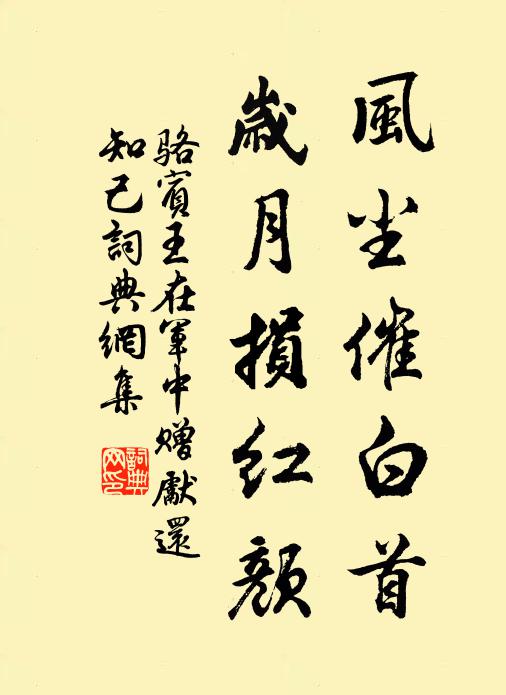 風尘催白首
歲月損紅顏
駱賓王在軍中贈獻還
知己詞典網集
詞典
网印